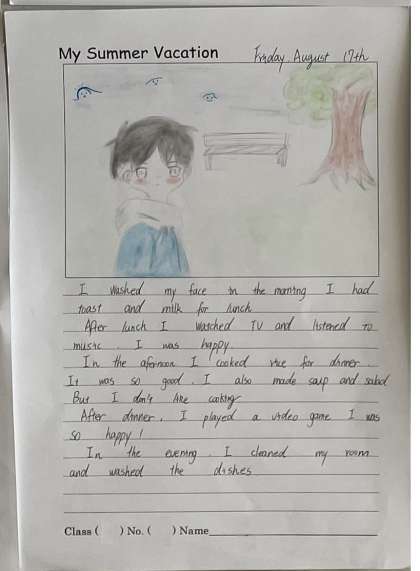 My Summer Vacation Friday August 17th
I washed my face in the morning I had
toast and milk for lunch
After lunch I watched TV and listened to
music. I was happy.
In the afernoon I cooked rice for dinner.
It was so good. I also made soup and salad
But I don't like cooking
After dinner, I played a video game I was
so happy!
In the evening, I cleaned my room
and washed the dishes
Class ( ) No. ( ) Name